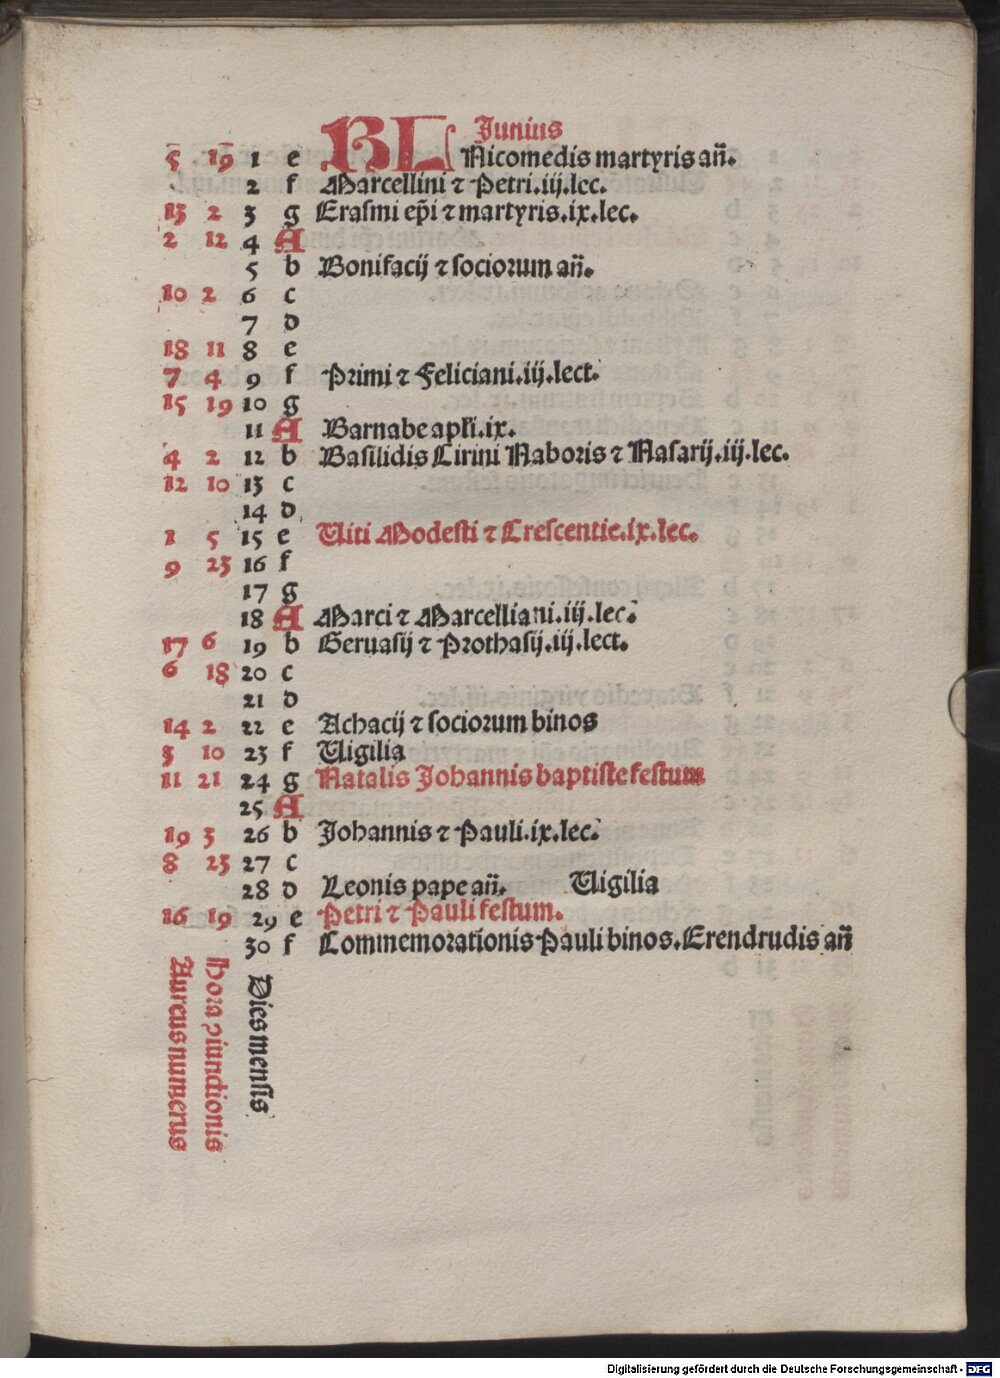 KL Junius
5 19 1 e Nicomedis martyris añ.
2 f Marcellini ⁊ Petri.iij.lec.
13 2 3 g Erasmi ep̄i ⁊ martyris.ix.lec.
2 12 4 A
5 b Bonifacij ⁊ sociorum añ.
10 2 6 c
7 d
18 11 8 e
7 4 9 f Primi ⁊ Feliciani.iij.lect.
15 19 10 g
11 A Barnabe apl̄i.ix.
4 2 12 b Basilidis Cirini Naboris ⁊ Nasarij.iij.lec.
12 10 13 c
14 d
1 5 15 e Uiti Modesti ⁊ Crescentie.ix.lec.
9 23 16 f
17 g
18 A Marci ⁊ Marcelliani.iij.lec.
17 6 19 b Geruasij ⁊ Prothasij.iij.lect.
6 18 20 c
21 d
14 2 22 e Achacij ⁊ sociorum binos
3 10 23 f Uigilia
11 21 24 g Natalis Johannis baptiste festum
25 A
19 3 26 b Johannis ⁊ Pauli.ix.lec.
8 23 27 c
28 d Leonis pape añ. Uigilia
16 19 29 e Petri ⁊ Pauli festum.
30 f Commemorationis Pauli binos.Erendrudis añ
Aureus numerus
Hora ꝯiunctionis
Dies mensis
Digitalisierung gefördert durch die Deutsche Forschungsgemeinschaft - DFG